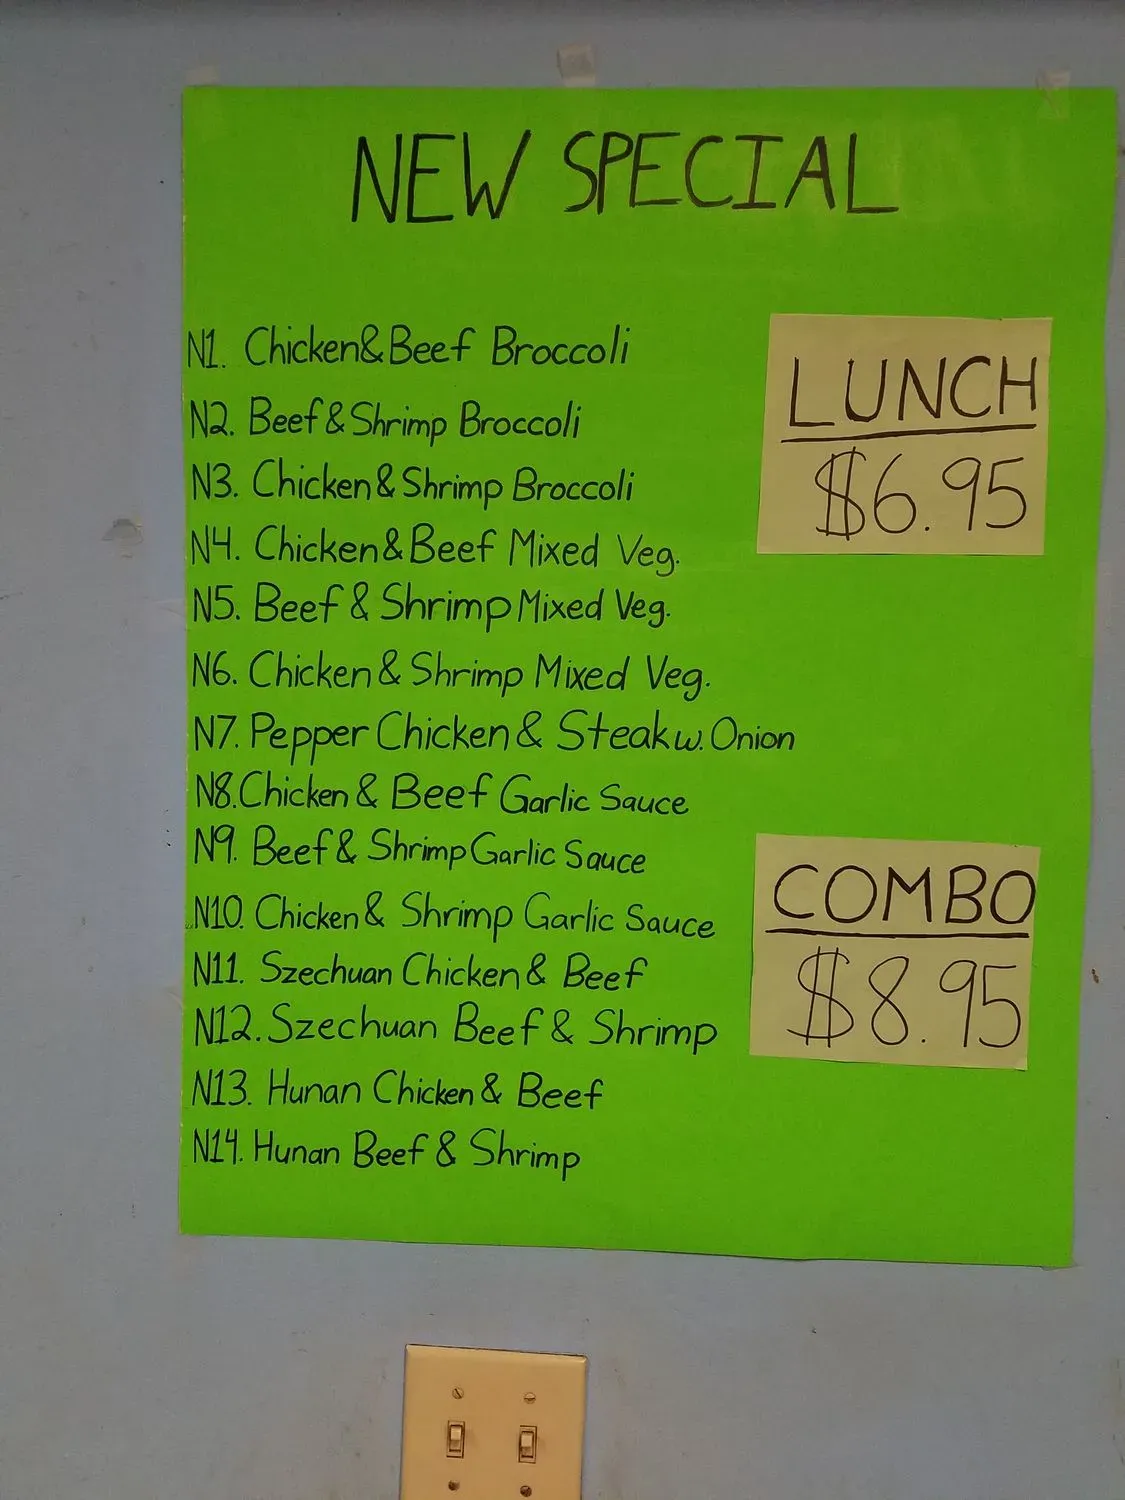 NEW SPECIAL
N1. Chicken&Beef Broccoli
N2. Beef & Shrimp Broccoli
N3. Chicken & Shrimp Broccoli
N4. Chicken & Beef Mixed Veg.
N5. Beef & Shrimp Mixed Veg.
N6. Chicken & Shrimp Mixed Veg.
N7. Pepper Chicken & Steak w. Onion
N8. Chicken & Beef Garlic Sauce
N9. Beef & Shrimp Garlic Sauce
N10. Chicken & Shrimp Garlic Sauce
N11. Szechuan Chicken & Beef
N12. Szechuan Beef & Shrimp
N13. Hunan Chicken & Beef
N14. Hunan Beef & Shrimp
LUNCH
$6.95
COMBO
$8.95